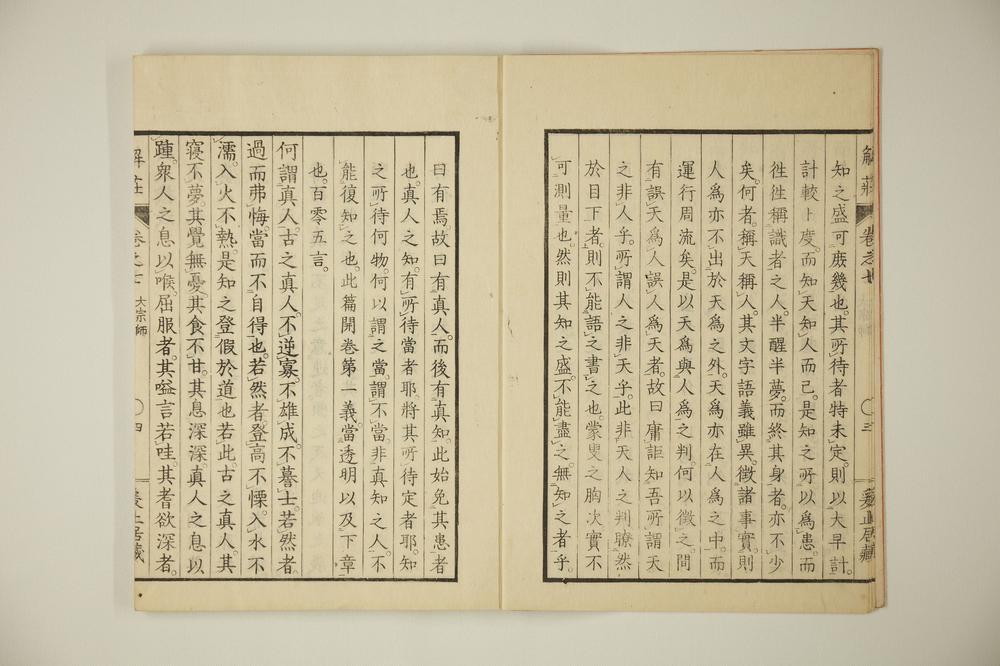 解莊 卷之七 ○三
知之盛可庻幾也。其所待者特未定。則以大早計。
計較卜度。而知天知人而己。是知之所以爲患。而
徃徃稱識者之人。半醒半夢。而終其身者。亦不少
矣。何者。稱天稱人。其文字語義雖異。徵諸事實。則
人爲亦不出於天爲之外。天爲亦在人爲之中。而
運行周流矣。是以天爲與人爲之判。何以徵之。間
有誤天爲人。誤人爲天者。故曰庸詎知吾所謂天
之非人乎。所謂人之非天乎。此非天人之判瞭然
於目下者。則不能語之書之也。蒙叟之胸次實不
可測量也。然則其知之盛。不能盡之。無知之者乎。
曰有焉。故曰有真人。而後有真知。此始免其患者
也。真人之知。有所待當者耶。將其所待定者耶。知
之所待何物。何以謂之當。謂不當。非真知之人。不
能復知之也。此篇開卷第一義。當透明以及下章
也。百零五言。
何謂真人。古之真人。不逆寡。不雄成。不謩士。若然者
過而弗悔。當而不自得也。若然者登高不慄。入水不
濡。入火不熱。是知之登假於道也若此古之真人。其
寝不夢。其覺無憂。其食不甘。其息深深。真人之息以
踵。衆人之息以喉。屈服者。其嗌言若哇。其耆欲深者。
解莊 卷之七 大宗師 ○四